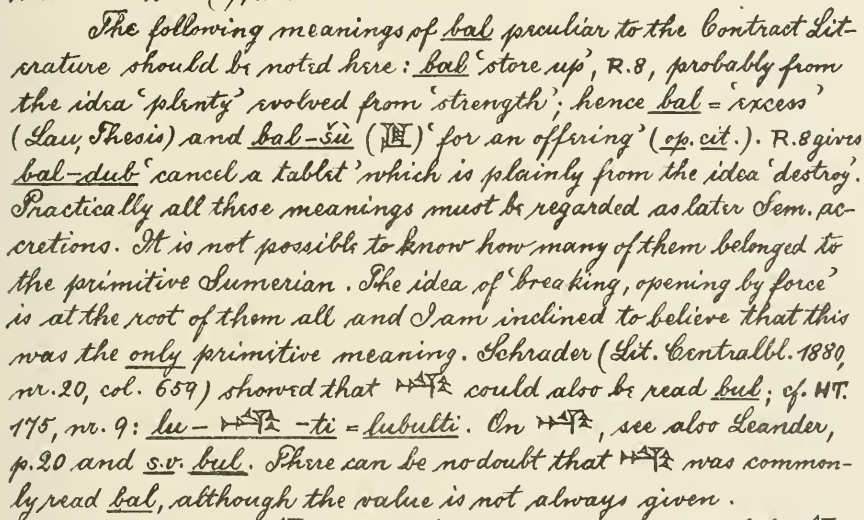 The following meanings of bal peculiar to the Contract Lit-
erature should be noted here: bal ‘store up’, R.8, probably from
the idea ‘plenty’ evolved from ‘strength’; hence bal = ‘excess’
(Lau, Thesis) and bal-šù () ‘for an offering’ (op. cit.). R.8 gives
bal-dub ‘cancel a tablet’ which is plainly from the idea ‘destroy’.
Practically all these meanings must be regarded as later Sem. ac-
cretions. It is not possible to know how many of them belonged to
the primitive Sumerian. The idea of ‘breaking, opening by force’
is at the root of them all and I am inclined to believe that this
was the only primitive meaning. Schrader (Lit. Centralbl. 1880,
nr. 20, col. 659) showed that could also be read bul; cf. HT.
175, nr. 9: lu- -ti = lubulti. On , see also Leander,
p. 20 and s.v. bul. There can be no doubt that was common-
ly read bal, although the value is not always given.